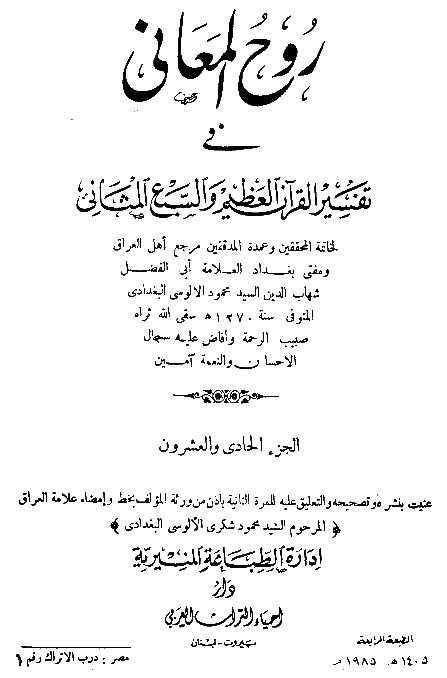 روح المعاني
في
تفسير القرآن العظيم والسبع المثاني
لخاتمة المحققين وعمدة المدققين مرجع أهل العراق
ومفتى بغداد العلامة أبى الفضل
شهاب الدين السيد محمود الالوسى البغدادى
المتوفى سنة ١٢٧٠ ه سقى الله ثراه
صبيب الرحمة وأفاض عليه سجال
الاحسان والنعمة آمين
الجزء الحادى والعشرون
عنيت بنشره وتصحيحه والتعليق عليه للمرة الثانية باذن من ورثة المؤلف بخط وإمضاء علامة العراق
﴿ المرحوم السيد محمود شكرى الالوسى البغدادى ﴾
إدارة الطباعة المنيرية
دار
إحياء التراث العربي
بيروت - لبنان
الطبعة الرابعة
١٤٠٥ ه ١٩٨٥ م
مصر : درب الاتراك رقم ١